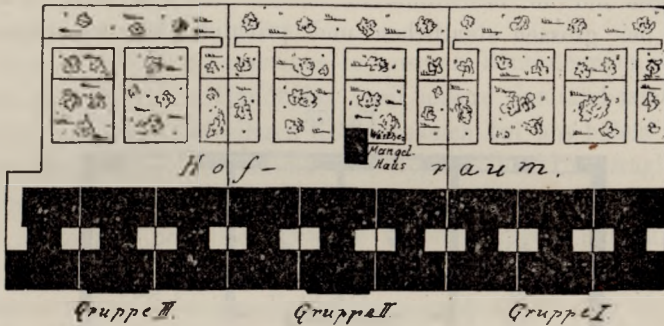 Mangel
Haus
Hof- raum.
Gruppe III. Gruppe II. Gruppe I.